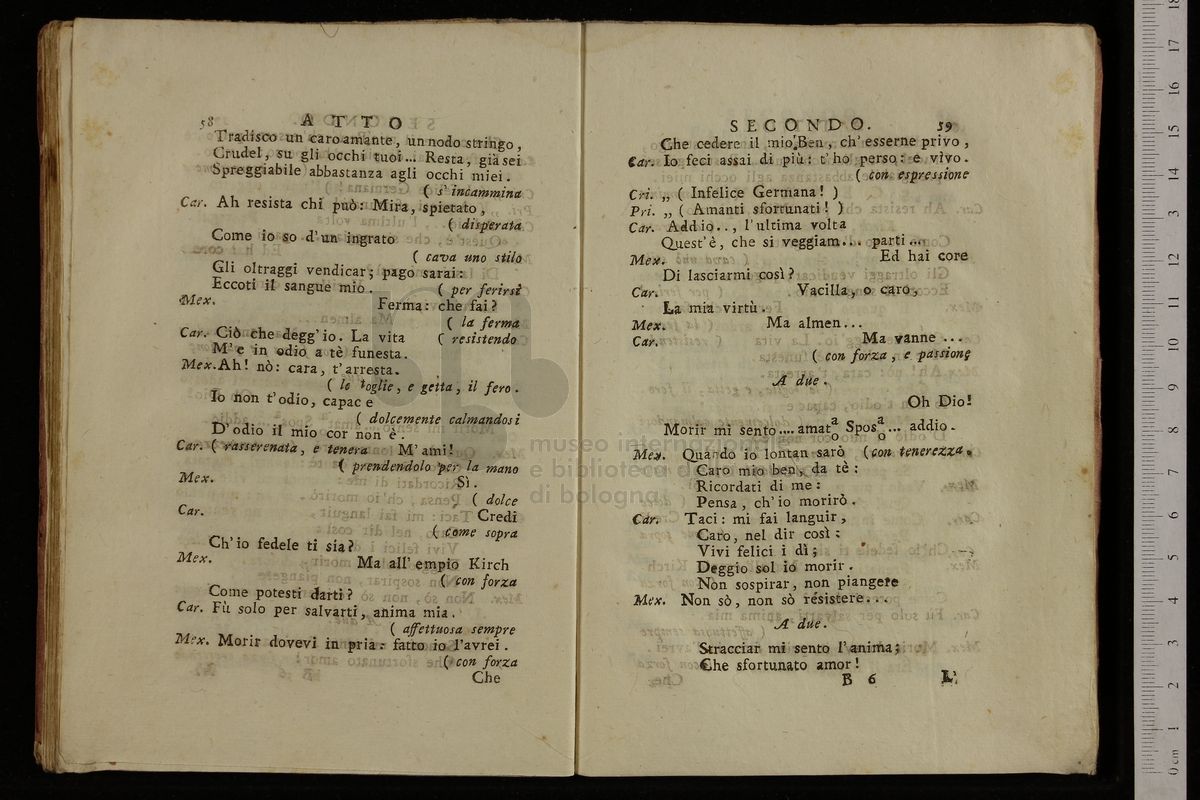 58 ATTO
Tradisco un caro amante, un nodo stringo,
Crudel, su gli occhi tuoi... Resta, già sei
Spreggiabile abbastanza agli occhi miei.
( s' incammina
Car. Ah resista chi può: Mira, spietato,
( disperata
Come io so d'un ingrato
( cava uno stilo
Gli oltraggi vendicar; pago sarai:
Eccoti il sangue mio. ( per ferirsi
Mex. Ferma: che fai?
( la ferma
Car. Ciò che degg' io. La vita ( resistendo
M' e in odio a tè funesta.
Mex. Ah! nò: cara, t'arresta.
( le toglie, e getta, il fero.
Io non t'odio, capace
( dolcemente calmandosi
D'odio il mio cor non è.
Car. ( rasserenata, e tenera M' ami!
( prendendolo per la mano
Mex. Sì.
( dolce
Car. Credi
( come sopra
Ch'io fedele ti sia?
Mex. Ma all' empio Kirch
( con forza
Come potesti darti?
Car. Fù solo per salvarti, anima mia.
( affettuosa sempre
Mex. Morir dovevi in pria: fatto io l'avrei.
( con forza
Che
SECONDO. 59
Che cedere il mio Ben, ch' esserne privo,
Car. Io feci assai di più: t'ho perso: e vivo.
( con espressione
Cri. „ ( Infelice Germana! )
Pri. „ ( Amanti sfortunati! )
Car. Addio.., l'ultima volta
Quest'è, che si veggiam... parti...
Mex. Ed hai core
Di lasciarmi così?
Car. Vacilla, o caro,
La mia virtù.
Mex. Ma almen...
Car. Ma vanne ...
( con forza, e passione
A due.
Oh Dio!
Morir mi sento.... amat a/o Spos a/o ... addio.
Mex. Quando io lontan sarò (con tenerezza.
Caro mio ben, da tè:
Ricordati di me:
Pensa, ch'io morirò.
Car. Taci: mi fai languir,
Caro, nel dir così:
Vivi felici i dì;
Deggio sol io morir.
Non sospirar, non piangere
Mex. Non sò, non sò résistere...
A due.
Stracciar mi sento l'anima;
Che sfortunato amor!
B 6 L'
museo internazionale
e biblioteca della musica
di bologna